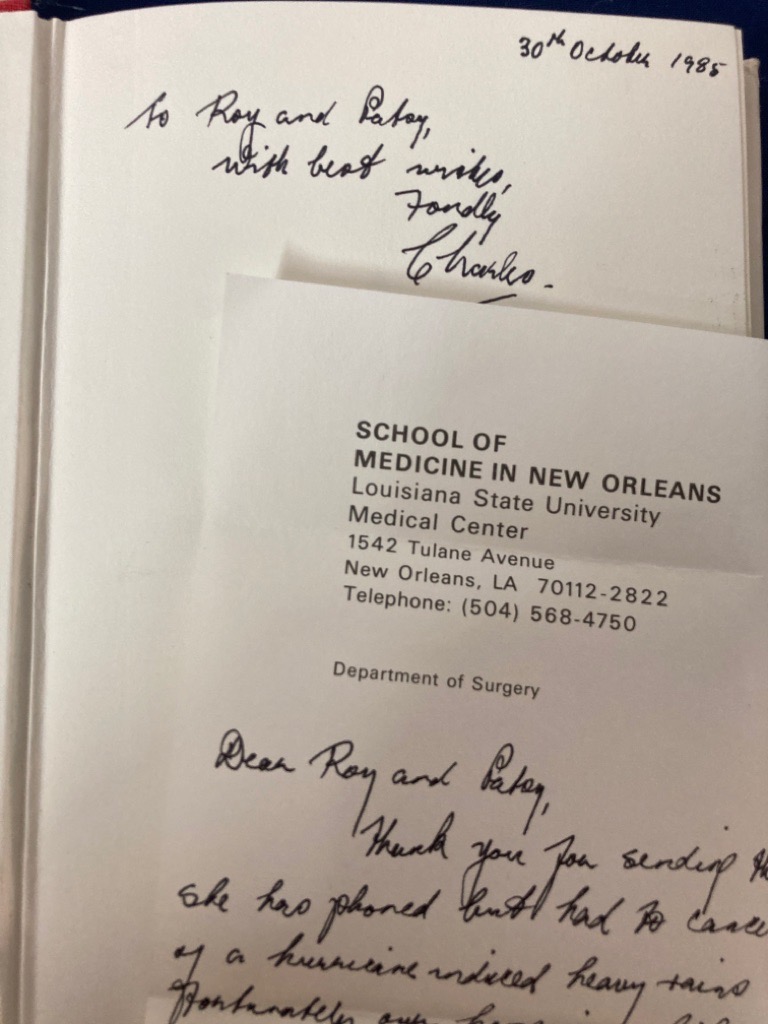 30th October 1985
To Roy and Patsy,
with best wishes,
Fondly
Charles.
SCHOOL OF
MEDICINE IN NEW ORLEANS
Louisiana State University
Medical Center
1542 Tulane Avenue
New Orleans, LA 70112-2822
Telephone: (504) 568-4750
Department of Surgery
Dear Roy and Patsy,
Thank you for sending
she has phoned but had to
of a hurricane induced heavy rains
Fortunately our